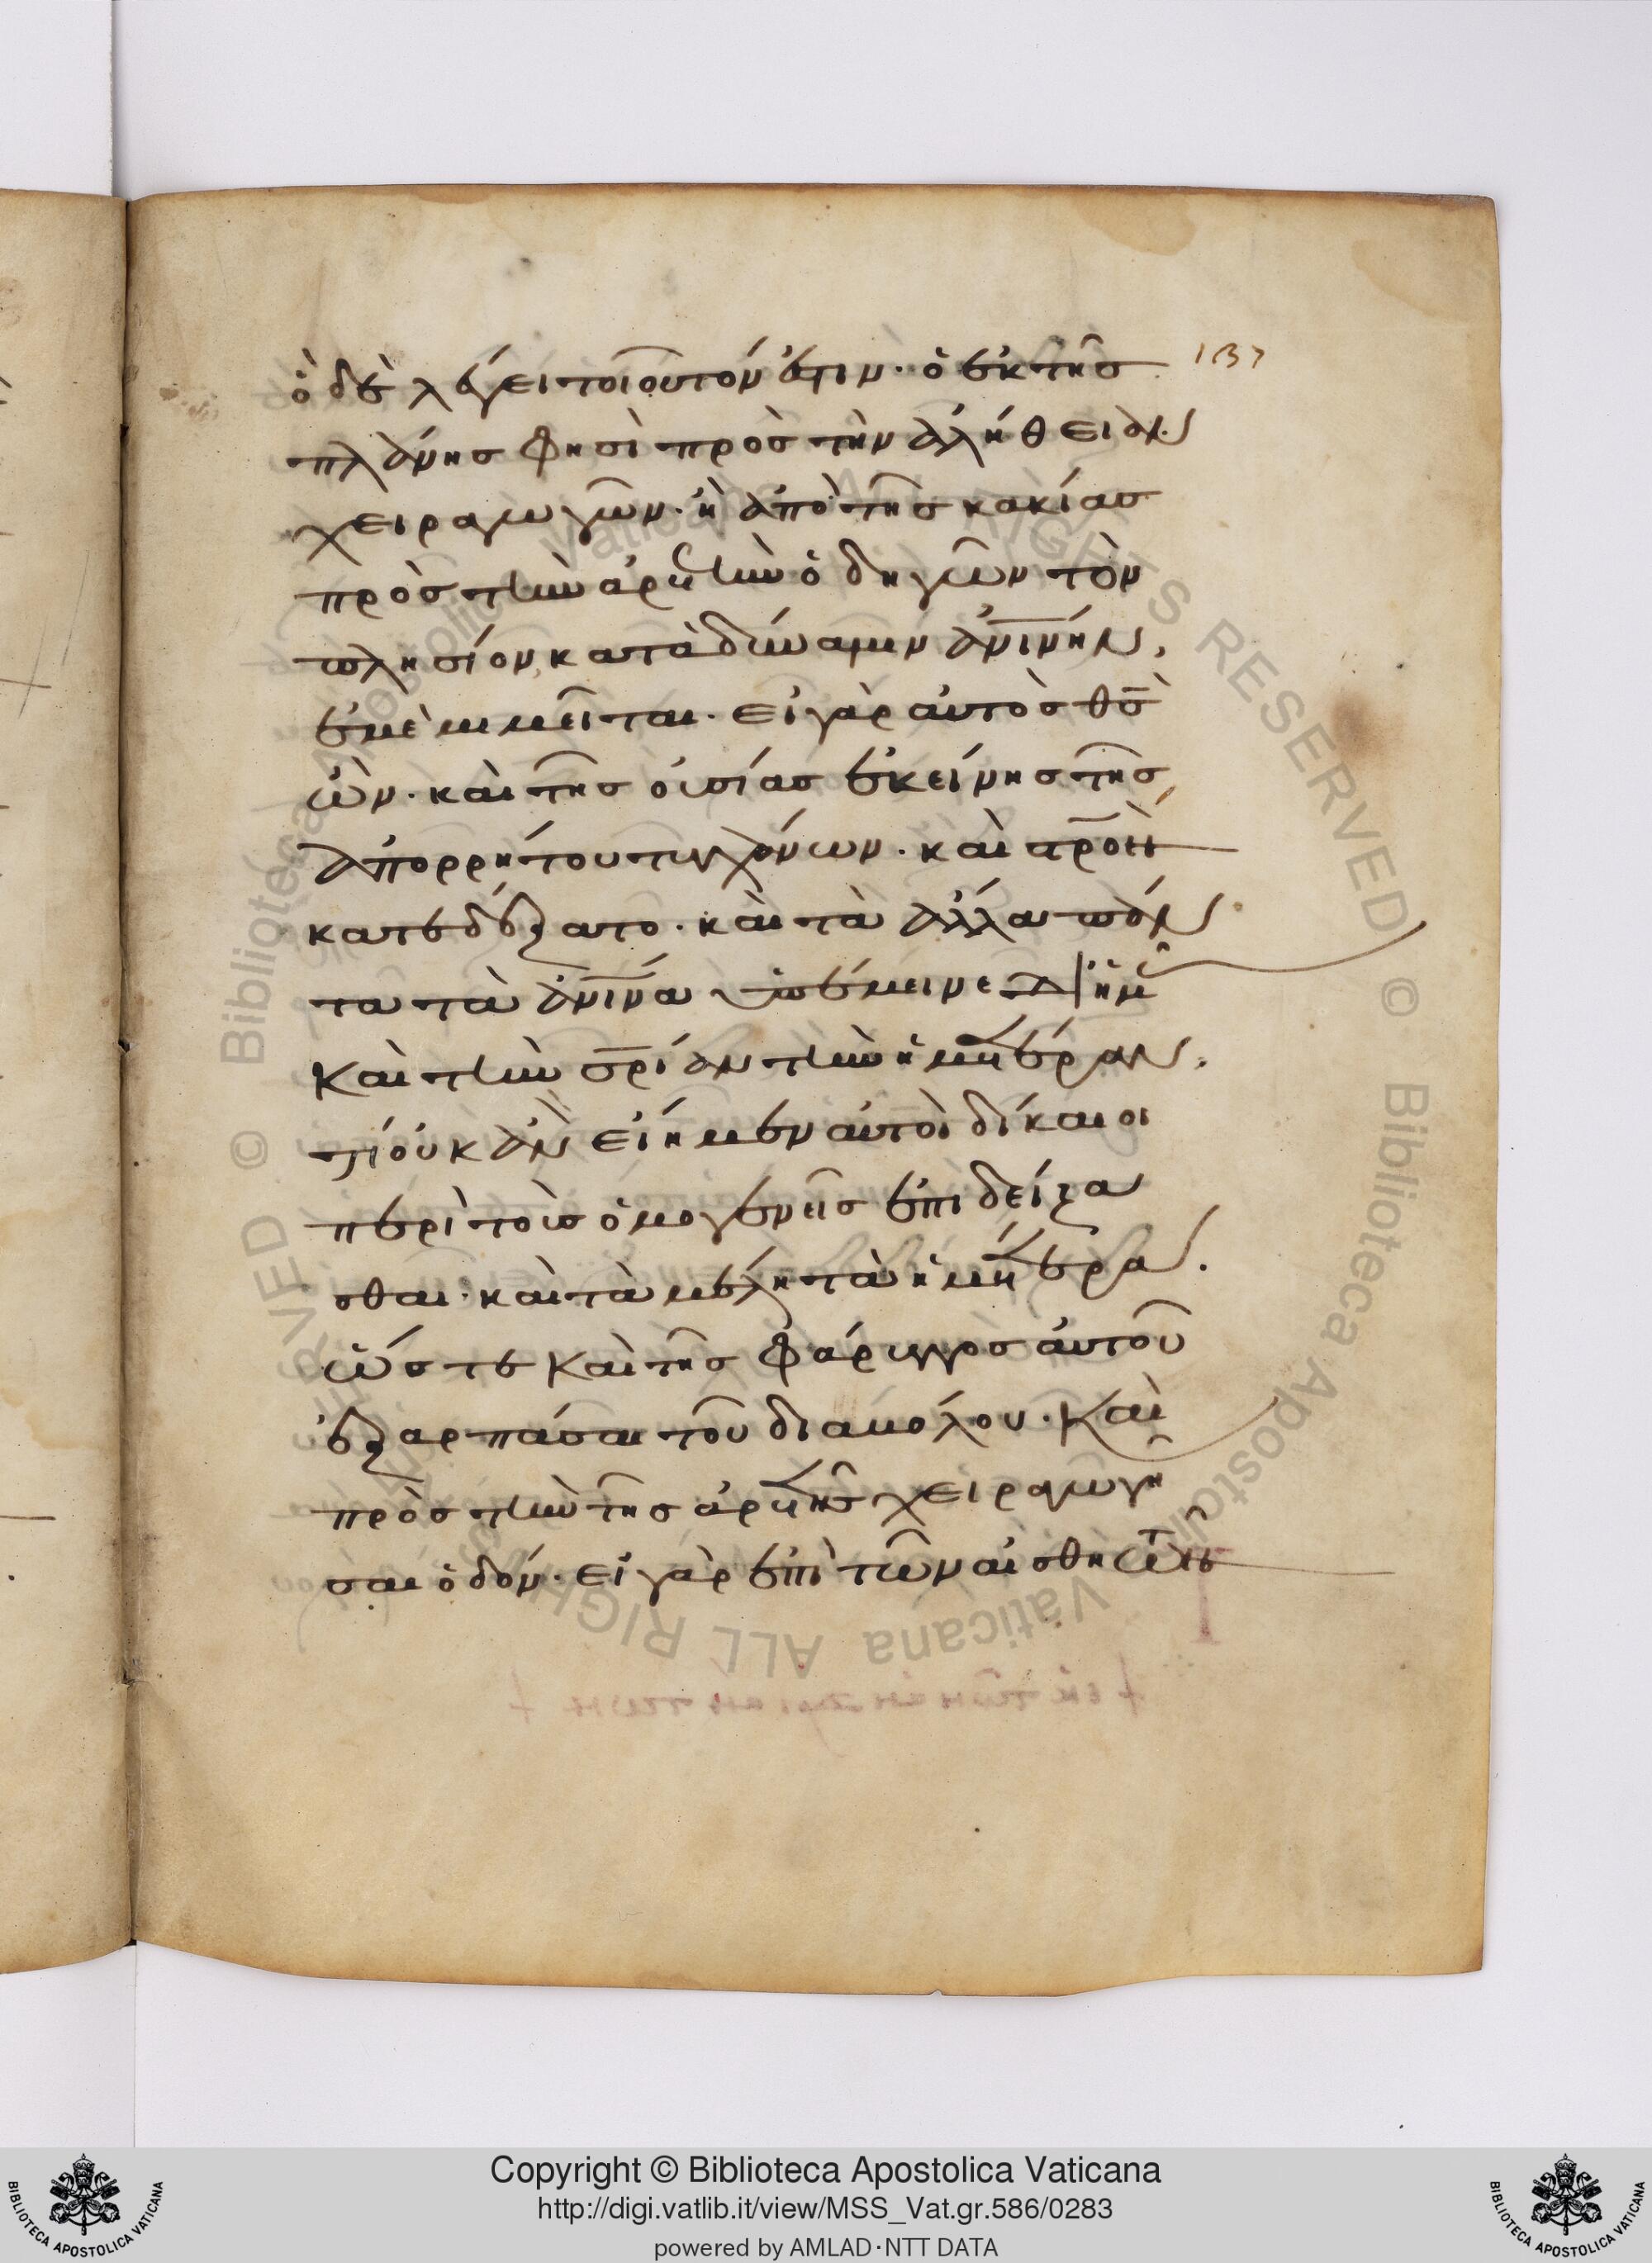 ὁ δὲ λέγει τοιοῦτόν ἐστιν· ὁ ἐκ τῆς 137
πλάνης φησὶ πρὸς τὴν ἀλήθειαν
χειραγωγῶν· ἢ ἀπὸ τῆς κακίας
πρὸς τὴν ἀρετὴν ὁδηγῶν τὸν
πλησίον, κατὰ δύναμιν ἀνίνην,
ἐμὲ μιμεῖται. εἰ γὰρ αὐτὸς θς
ὢν· καὶ τῆς οὐσίας ἐκείνης τῆς
ἀπορρήτου τυγχάνων· καὶ στροὺ
κατεδέξατο· καὶ τὰ ἄλλα πάν
τα τὰ ἀνινα ὑπέμεινε δι ἡμᾶς
καὶ τὴν σρίαν τὴν ἡμετέραν.
τί οὐκ ἂν εἴημεν αὐτοὶ δίκαιοι
περὶ τοὺς ὁμογενεῖς ἐπιδείξα
σθαι· καὶ τὰ μέλη τὰ ἡμέτερα.
ὥστε καὶ τῆς φάρυγγος αὐτοῦ
ἐξαρπάσαι τοῦ διαβόλου. καὶ
πρὸς τὴν τῆς ἀρετῆς χειραγωγῆ
σαι ὁδόν. εἰ γὰρ ἐπὶ τῶν αἰσθητῶν
Copyright © Biblioteca Apostolica Vaticana
http://digi.vatlib.it/view/MSS_Vat.gr.586/0283
powered by AMLAD·NTT DATA
BIBLIOTECA APOSTOLICA VATICANA
BIBLIOTECA APOSTOLICA VATICANA